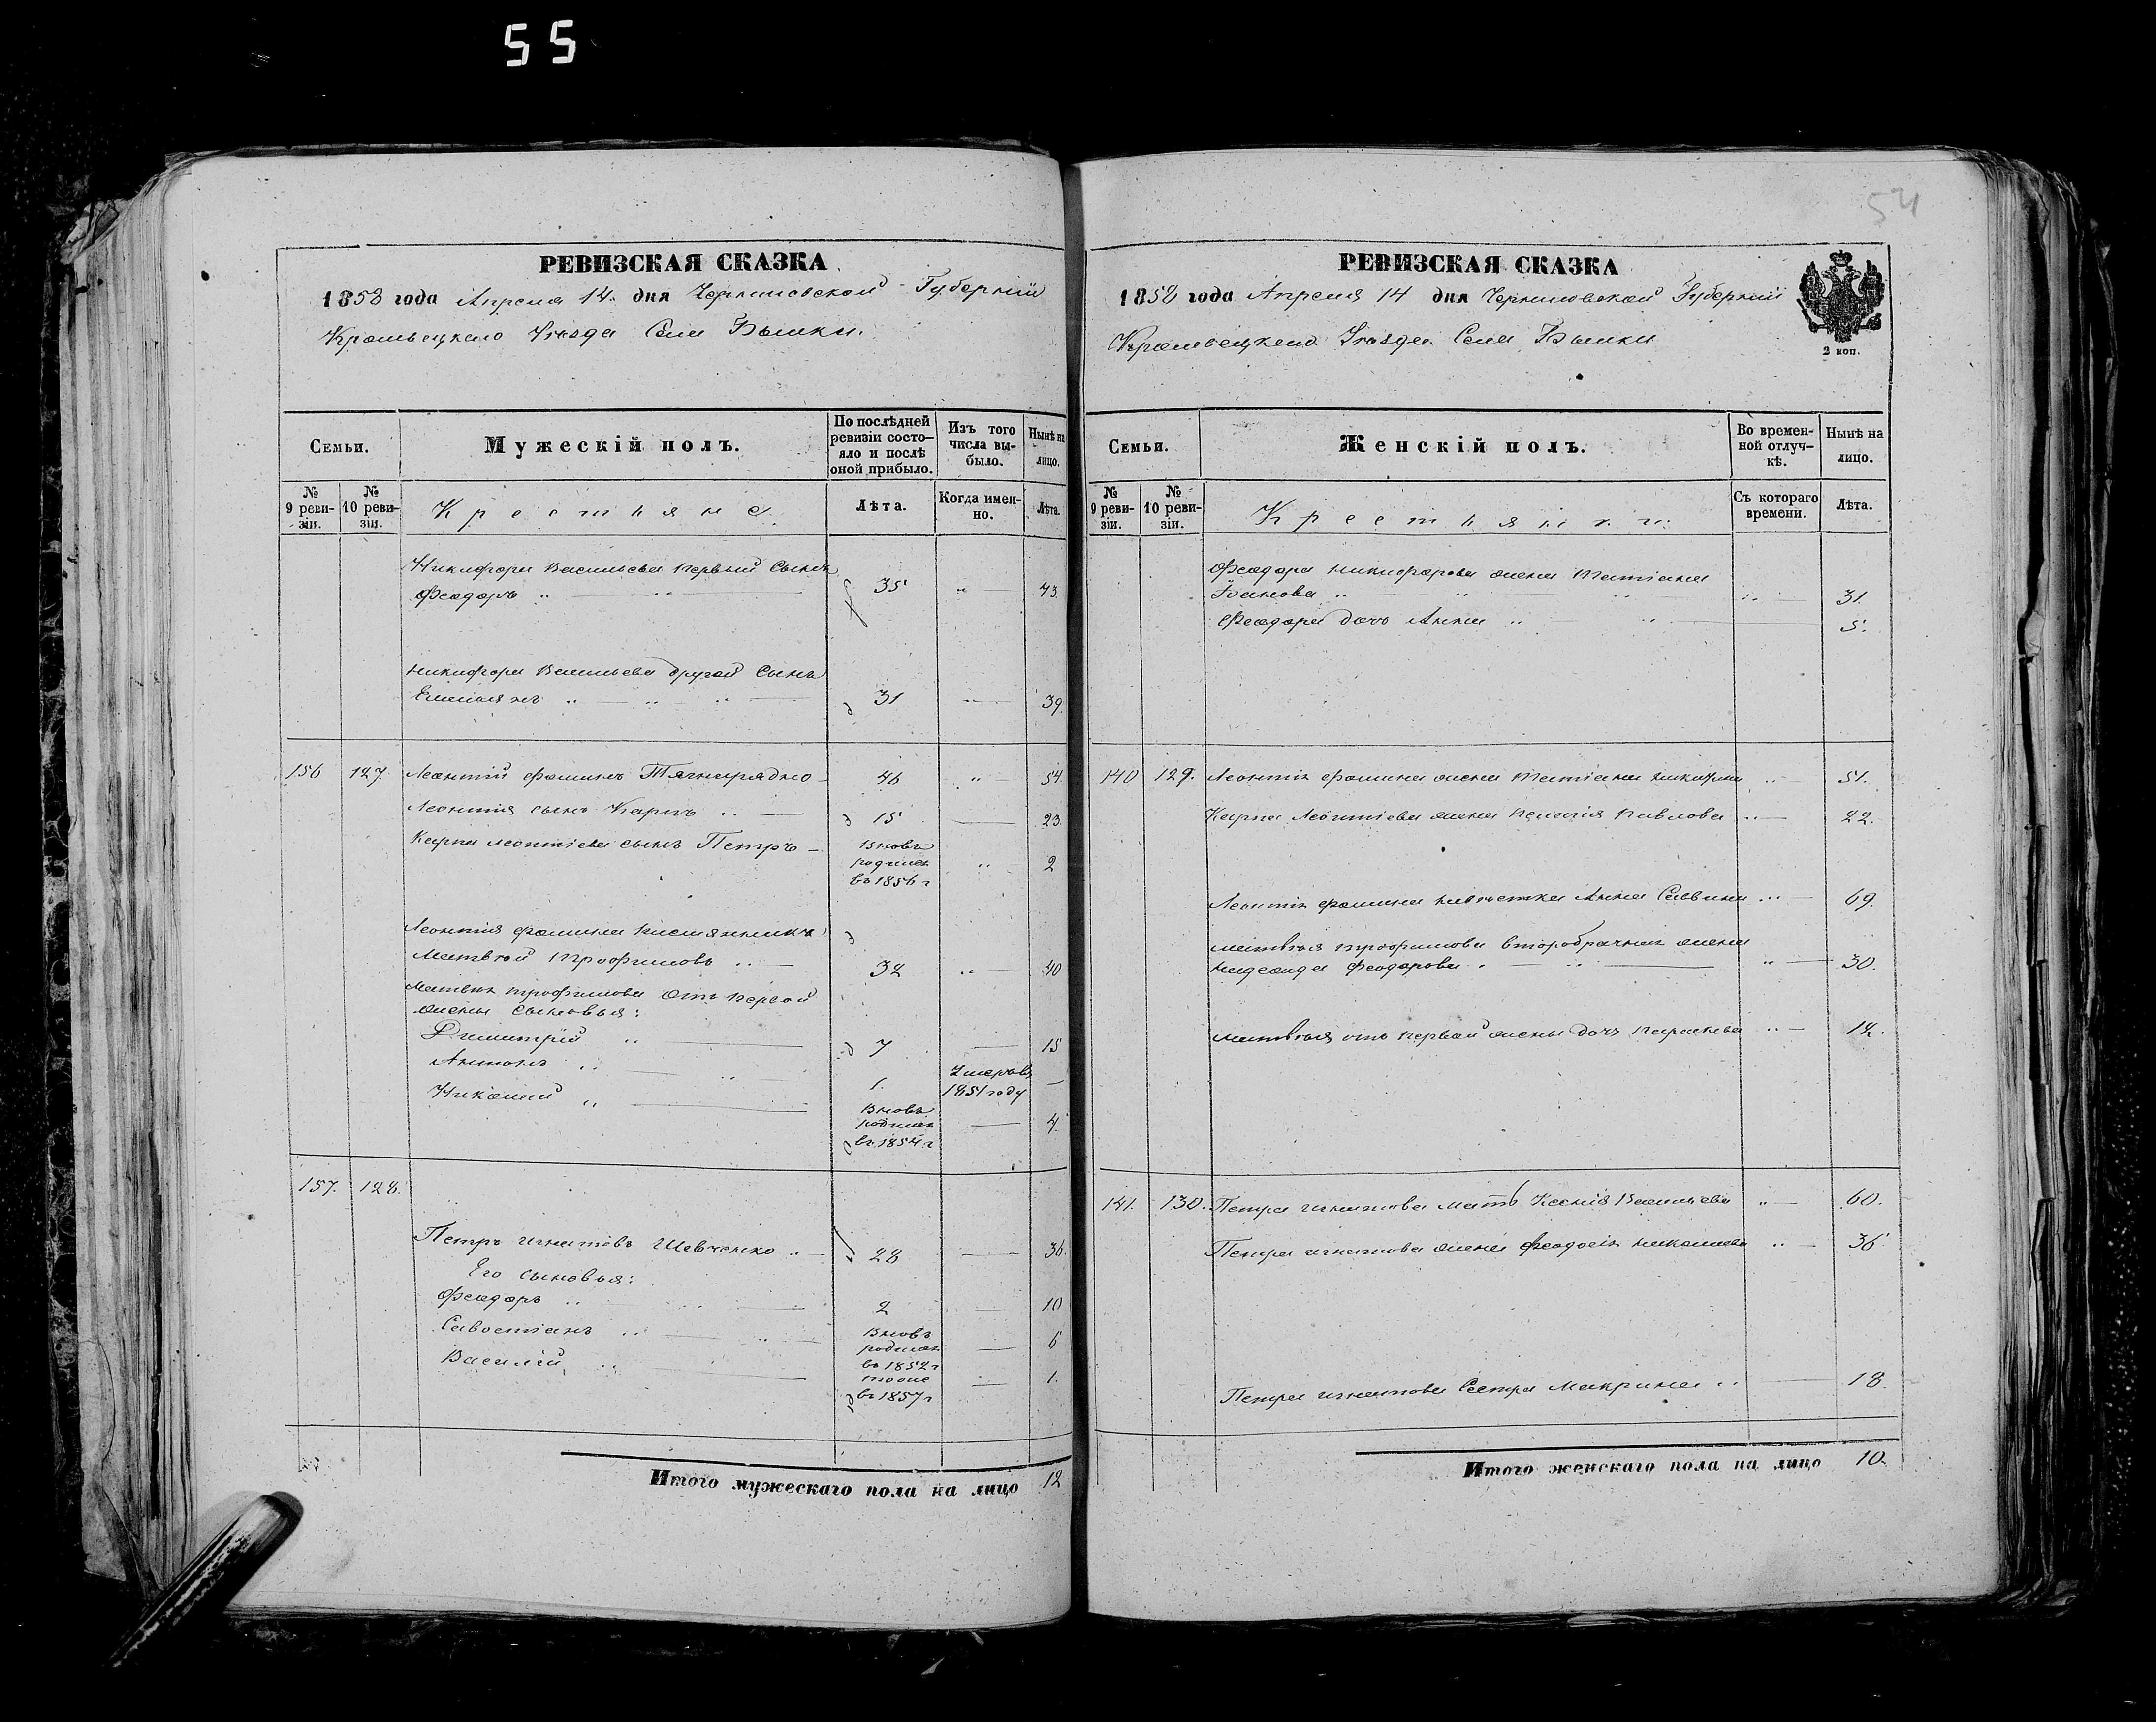 55
54
РЕВИЗСКАЯ СКАЗКА
1858 года Апреля 14. дня Черниговской Губерніи
Кролевецкаго Уезда Села Быики.
Семьи.
Мужескій полъ.
По послѣдней ревизіи состо-яло и послѣ оной прибыло.
Изъ того числа вы-было.
Нынѣ на лицо.
№ 9 реви-зіи.
№ 10 реви-зіи.
Крестьяне
Лѣта.
Когда имен-но.
Лѣта.
Никифора Васильева первый Сынъ
Феодоръ „ 35 „ 43.
Никифора Васильева другой Сынъ
Емельянъ „ „ „ 31 „ 39.
156 127. Леонтій Фоминъ 46 „ 54.
Леонтія сынъ Карпъ „ 15 23.
Карпа Леонтіева сынъ Петръ вновь родился въ 1856 г „ 2
Леонтія Фомина племянникъ
Матвей Трофимовъ „ 32 „ 40
Матвея Трофимова отъ первой
жены сыновья:
Димитрій „ 7 15
Антонъ „ „ 1. Умеръ въ 1851 году —
Николай „ Вновь родился въ 1854 г 4.
157. 128.
Петръ Игнатовъ Шевченко „ 28 36
Его сыновья:
Феодоръ „ 2 10
Савостіанъ „ „ Вновь родился въ 1852 г 6
Василій „ тоже въ 1857 г 1.
Итого мужескаго пола на лицо 12
РЕВИЗСКАЯ СКАЗКА
2 коп.
1858 года Апреля 14 дня Черниговской Губерніи
Кролевецкаго Уезда Села Быики
Семьи.
Женскій полъ.
Во времен-ной отлуч-кѣ.
Нынѣ на лицо.
№ 9 реви-зіи.
№ 10 реви-зіи.
Крестьянки:
Съ котораго времени.
Лѣта.
Феодора Никифорова жена Татіана
Іванова „ „ „ „ 31.
Феодора дочь Анна „ „ 5.
140 129. Леонтія Фомина жена Татіана „ 51.
Карпа Леонтіева жена Пелагія Павлова „ 22.
Леонтія Фомина невестка Анна Саввина „ 69.
Матвея Трофимова второбрачная жена
Феодорова „ „ „ 30.
Матвея отъ первой жены дочь „ 12.
141. 130. Петра Игнатова мать Ксенія Васильева „ 60.
Петра Игнатова жена Феодосія Николаева „ 36
Петра Игнатова Сестра Макрина „ 18.
Итого женскаго пола на лицо 10.